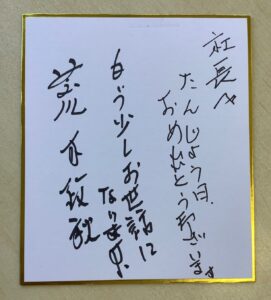 社長へ
たんじょう日、
おめでとうございます。
もう少しお世話に
なります。
荒木